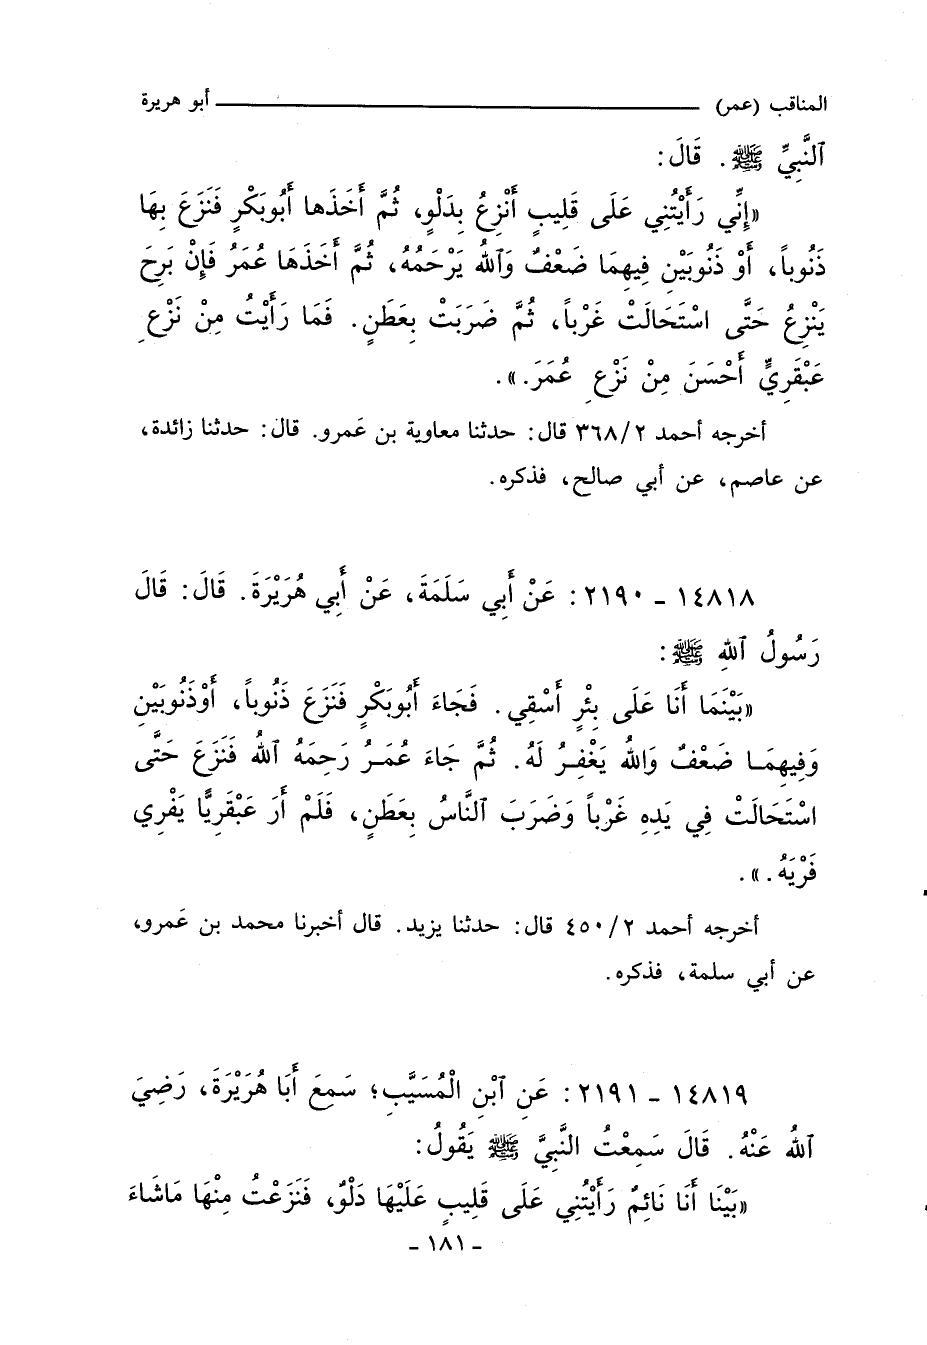 المناقب (عمر) ـــــــــــــــــــــ أبو هريرة
ٱلنَّبِيِّ ﷺ . قَالَ:
«إِنِّي رَأَيْتُنِي عَلَى قَلِيبٍ أَنْزِعُ بِدَلْوٍ، ثُمَّ أَخَذَها أَبُوبَكْرٍ فَنَزَعَ بِهَا
ذَنُوباً، أَوْ ذَنُوبَيْنِ فِيهِمَا ضَعْفٌ وَٱللهُ يَرْحَمُهُ، ثُمَّ أَخَذَهَا عُمَرُ فَإِنْ بَرِحَ
يَنْزِعُ حَتَّى اسْتَحَالَتْ غَرْباً، ثُمَّ ضَرَبَتْ بِعَطَنٍ. فَمَا رَأَيْتُ مِنْ نَزْعِ
عَبْقَرِيٍّ أَحْسَنَ مِنْ نَزْعِ عُمَرَ.».
أخرجه أحمد ٣٦٨/٢ قال: حدثنا معاوية بن عَمرو. قال: حدثنا زائدة،
عن عاصم، عن أبي صالح، فذكره.
١٤٨١٨ - ٢١٩٠: عَنْ أَبِي سَلَمَةَ، عَنْ أَبِي هُرَيْرَةَ. قَالَ: قَالَ
رَسُولُ ٱللهِ ﷺ:
«بَيْنَمَا أَنَا عَلَى بِئْرٍ أَسْقِي. فَجَاءَ أَبُوبَكْرٍ فَنَزَعَ ذَنُوباً، أَوْذَنُوبَيْنِ
وَفِيهِمَـا ضَعْفٌ وَٱللهُ يَغْفِـرُ لَهُ. ثُمَّ جَاءَ عُمَـرُ رَحِمَهُ ٱللهُ فَنَزَعَ حَتَّى
اسْتَحَالَتْ فِي يَدِهِ غَرْباً وَضَرَبَ ٱلنَّاسُ بِعَطَنٍ، فَلَمْ أَرَ عَبْقَرِيًّا يَفْرِي
فَرْيَهُ.».
أخرجه أحمد ٤٥٠/٢ قال: حدثنا يزيد. قال أخبرنا محمد بن عَمرو،
عن أبي سلمة، فذكره.
١٤٨١٩ - ٢١٩١: عَنِ ٱبْنِ الْمُسَيَّبِ؛ سَمِعَ أَبَا هُرَيْرَةَ، رَضِيَ
ٱللهُ عَنْهُ. قَالَ سَمِعْتُ النَّبِيَّ ﷺ يَقُولُ:
«بَيْنَا أَنَا نَائِمٌ رَأَيْتُنِي عَلَى قَلِيبٍ عَلَيْهَا دَلْوٌ، فَنَزَعْتُ مِنْهَا مَاشَاءَ
- ١٨١ -